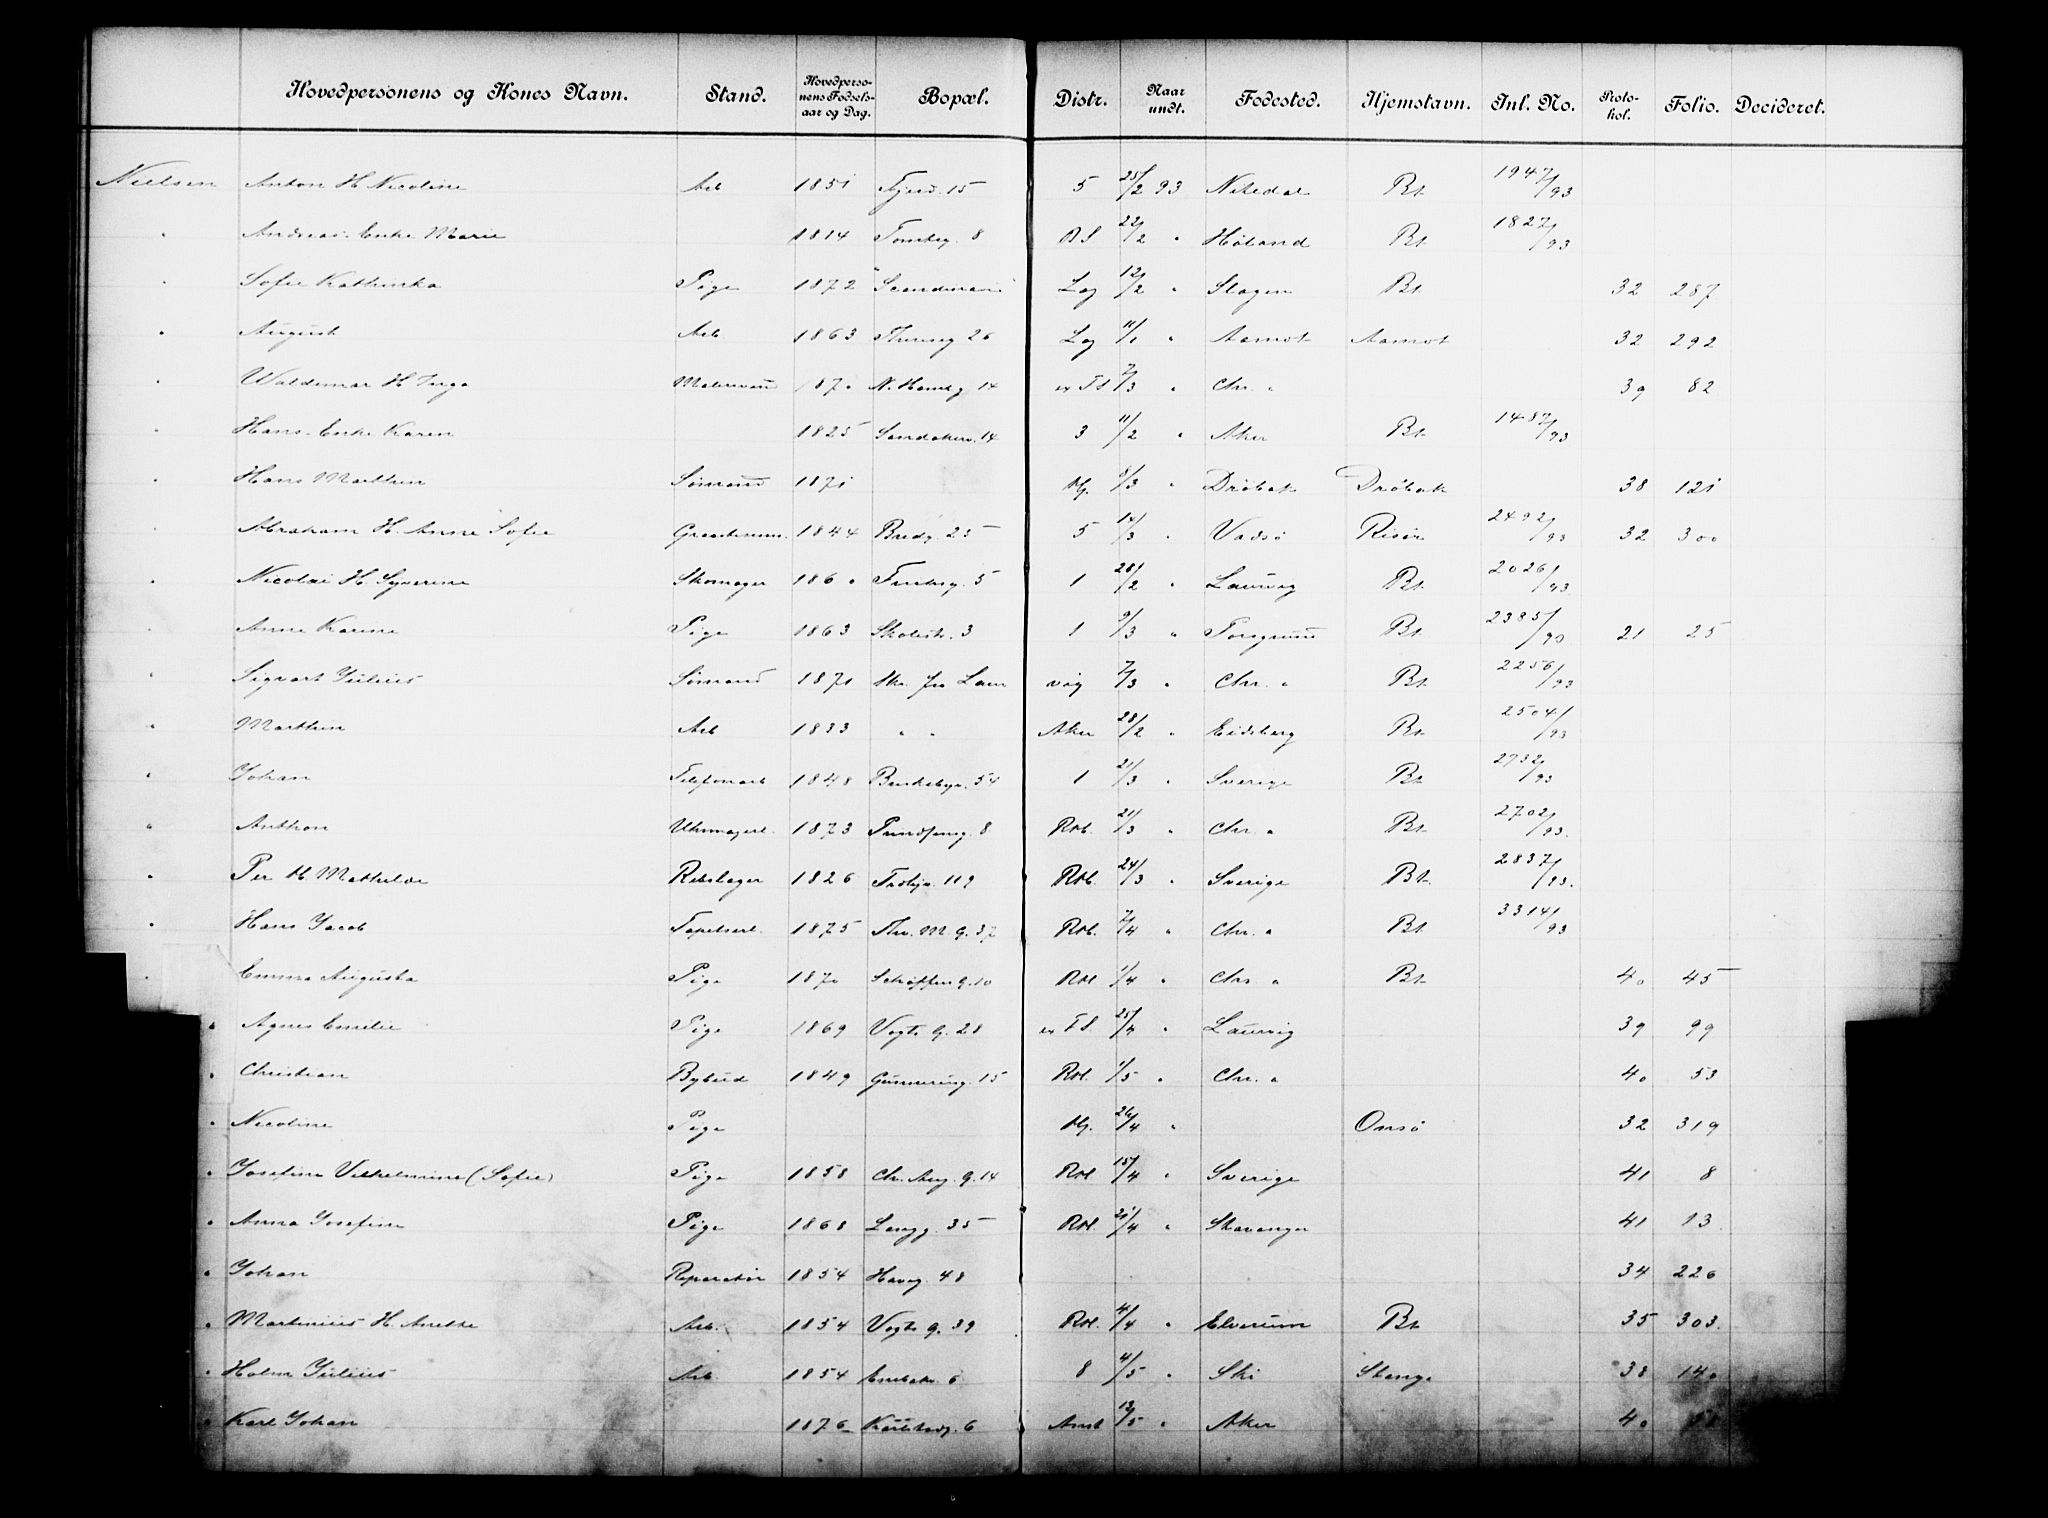 Hovedpersonens og Kones Navn. Stand. Hovedpersonens Fødselsaar og Dag. Bopæl. Distr. Naar undt. Fødested. Hjemstavn. Jnl. No. Protokol. Folio. Decideret.
Nielsen Anton H Nicoline Arb 1851 15 5 25/2 93 Nitedal Bt 1947/93
" Andreas Enke Marie 1814 Tomteg. 8 22/2 " Høland Bt 1827/93
" Sofie Kathinka Pige 1872 Lag 12/2 " Slagen Bt 32 287
" August Arb 1863 26 Lag 11/1 " Aamot Aamot 32 292
" Waldemar H Inga Malersvend 1870 14 7/3 " Chr. a 39 82
" Hans Enke Karen 1825 Sandakerv. 14 3 11/2 " Aker Bt 1487/93
" Hans Marthin Sømand 1871 8/3 " Drøbak Drøbak 38 121
" Abraham H. Anne Sofie 1844 Bredg. 25 5 14/3 " Vadsø Risør 2492/93 32 300
" Nicolai H. Syverine Skomager 1860 5 1 28/2 " Laurvig Bt 2026/93
" Anne Karine Pige 1863 Skolest. 3 1 9/3 " Porsgrund Bt 2385/93 21 25
" Sigvart Julius Sømand 1871 fra Laurvig 7/3 " Chr. a Bt 2256/93
" Marthin Arb 1833 " " Aker 28/2 " Eidsberg Bt 2504/93
" Johan Telefonarb 1848 54 1 21/3 " Sverige Bt 2732/93
" Anthon Uhrmagerl. 1873 8 Rtl. 21/3 " Chr. a Bt 2702/93.
" Per H Mathilde Rebslager 1826 119 Rtl. 24/3 " Sverige Bt. 2837/93.
" Hans Jacob Tapetserl. 1875 Thv. M. G. 37 Rtl. 7/4 " Chr. a Bt 3314/93
" Emma Augusta Pige 1870 G. 10 Rtl 1/4 " Chr a Bt 40 45
" Agnes Emilie Pige 1869 Vogts G. 28 25/4 " Laurvig 39 99
" Christian Bybud 1849 Gunnerusg. 15 Rtl. 1/5 " Chr. a 40 53
" Nicoline Pige 26/4 " Onsø 32 319
" Josefine Vilhelmine (Sofie) Pige 1858 Chr. Aug. G. 14 Rtl 15/4 " Sverige 41 8
" Anna Josefine Pige 1868 Langg. 35 Rtl. 21/4 " Stavanger 41 13.
" Johan Reparatør 1854 48 34 226
" Martinius H. Anette Arb. 1854 Vogts G. 39 Rtl. 4/4 " Elverum Bt 35 303.
" Holm Julius Arb 1854 Enebakv 6 8 4/5 " Ski Stange 38 140
" Karl Johan 1876 Karlstadg. 6 Amt 13/5 " Aker 40